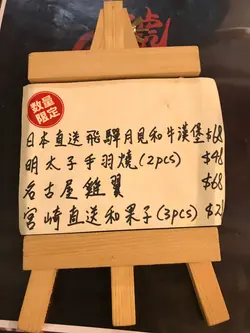 數量
限定
日本直送飛驒月見和牛漢堡$68
明太子手羽燒(2pcs) $48
名古屋雞翼 $68
宮崎直送和果子(3pcs) $2